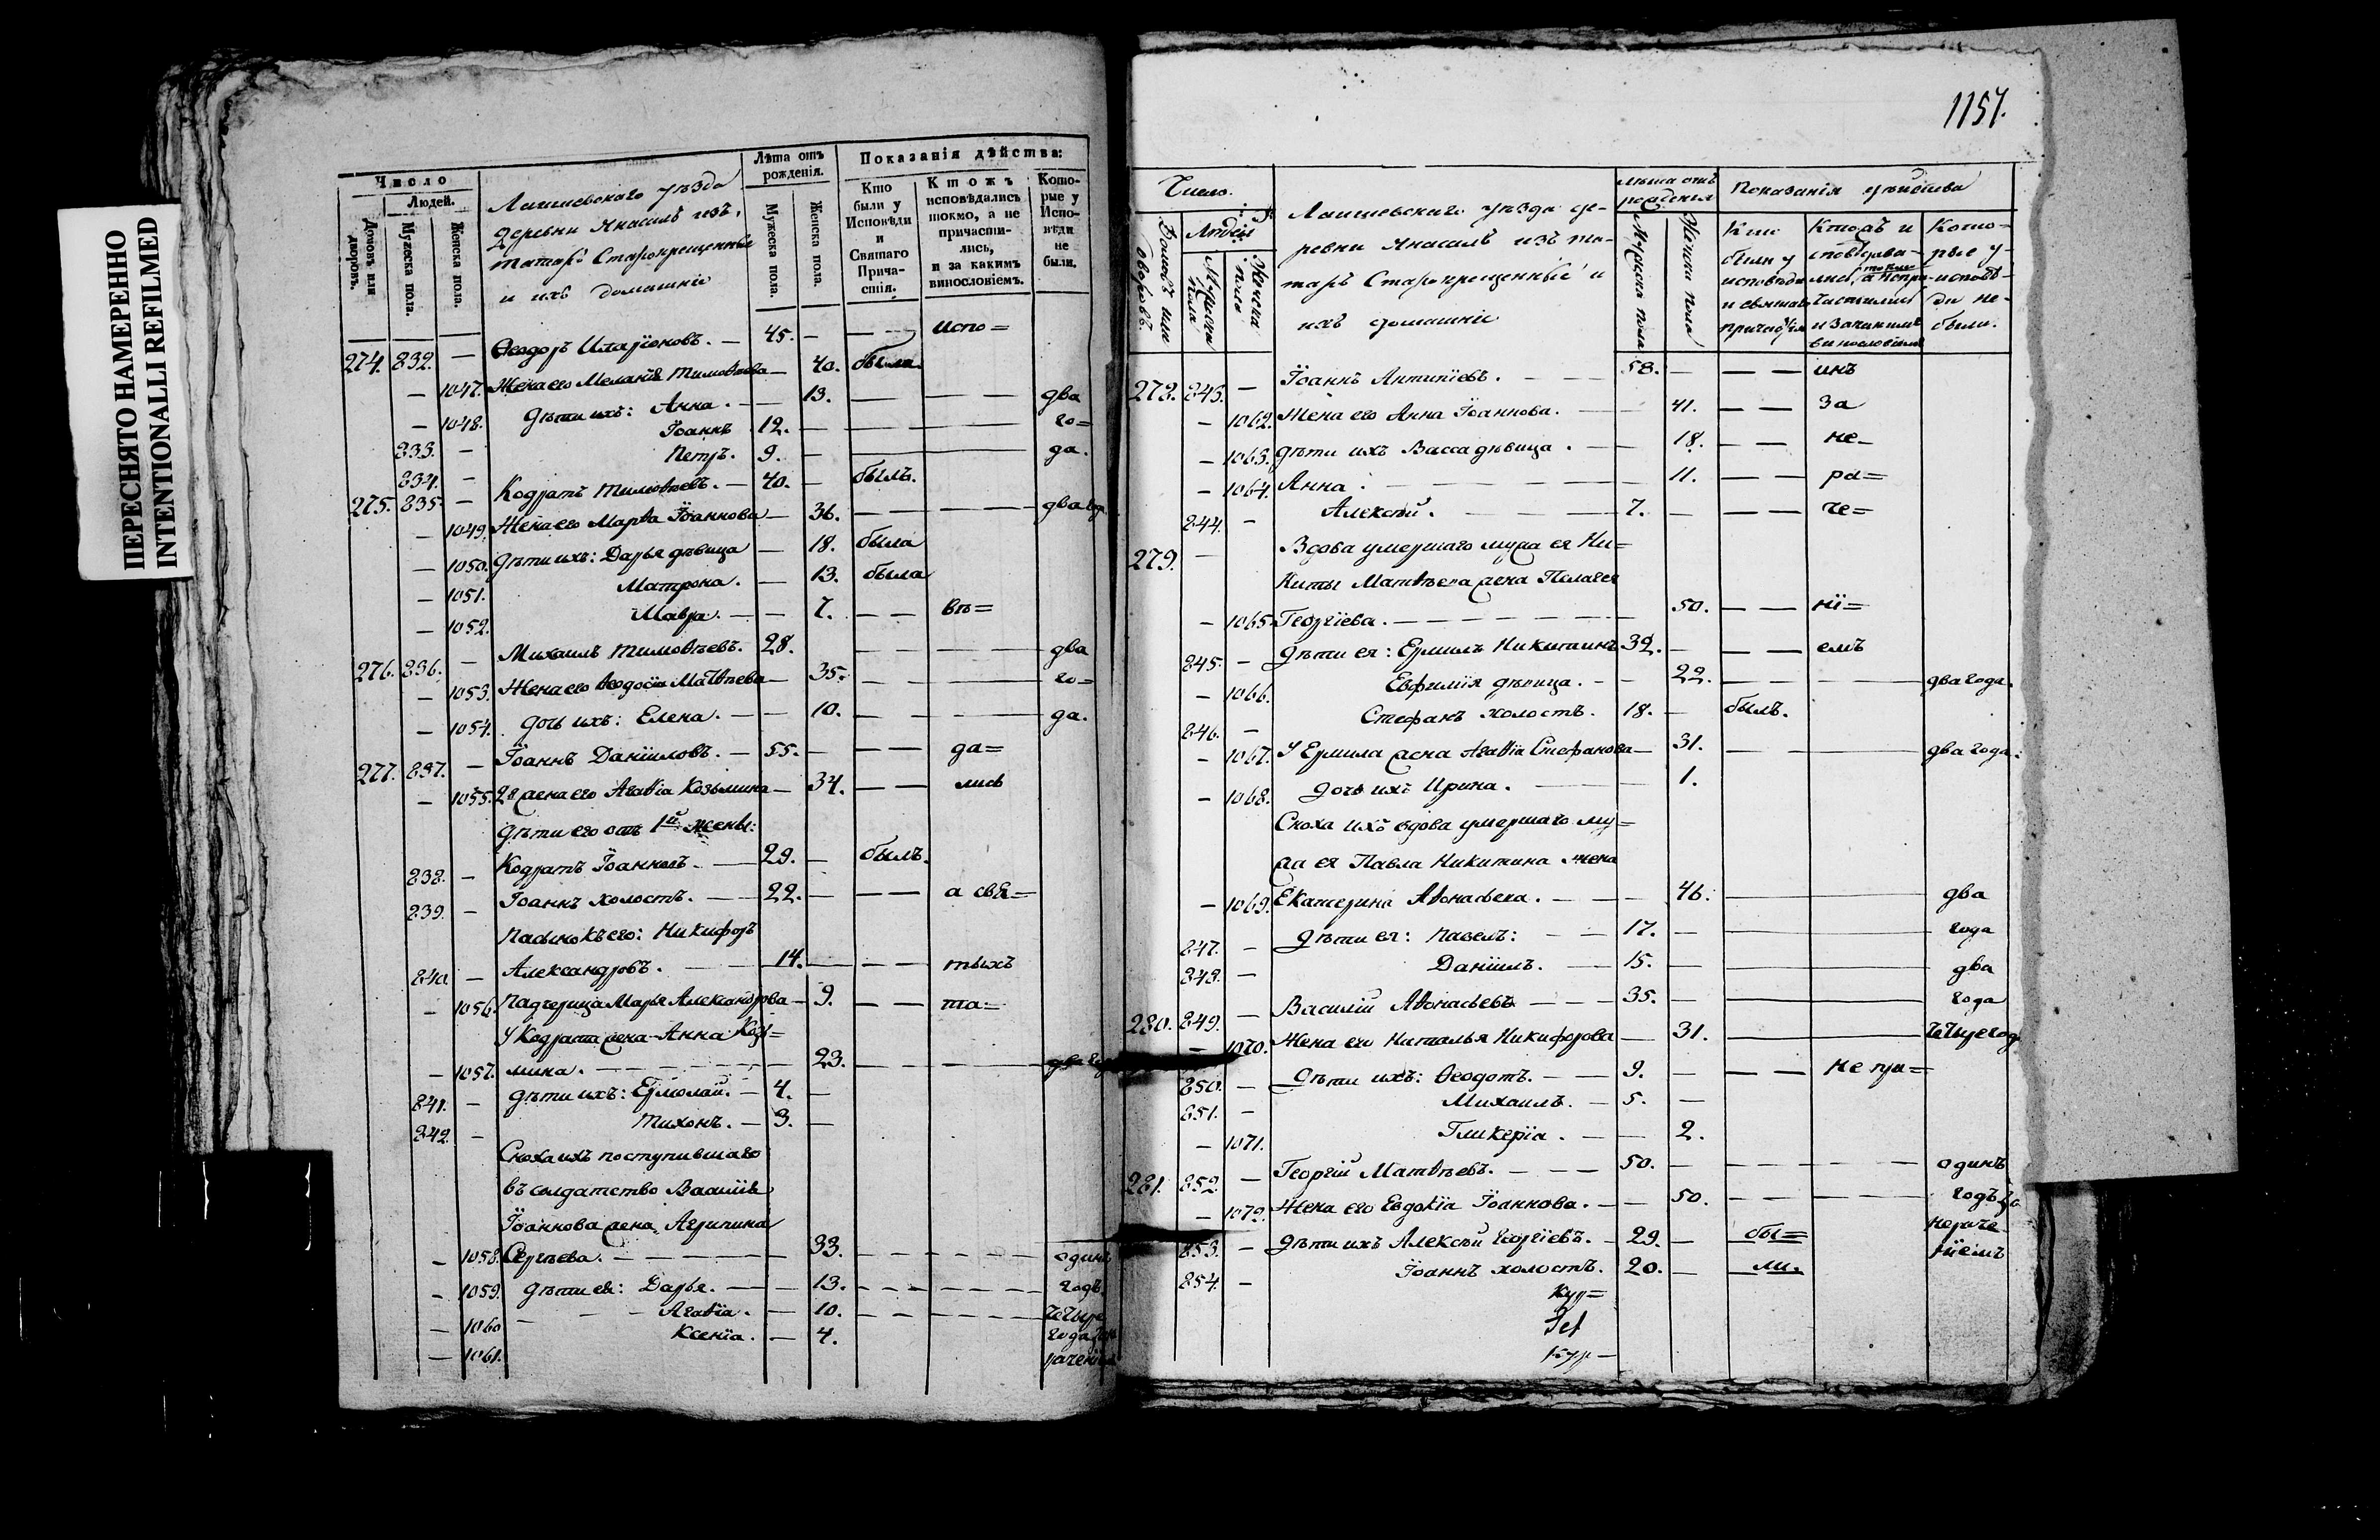 ПЕРЕСНЯТО НАМЕРЕННО
INTENTIONALLI REFILMED
Число
Лаишевскаго уѣзда
деревни Янасалъ изъ
татаръ Старокрещенные
и ихъ домашніе
Лѣта отъ рожденія.
Показанія дѣйства:
Людей.
Домовъ или дворовъ.
Мужеска пола.
Женска пола.
Мужеска пола.
Женска пола.
Кто были у Исповѣди и Святаго Причастія.
Ктожъ исповѣдались токмо, а не причастились, и за какимъ винословіемъ.
Которые у Исповѣди не были.
274. 832. — Ѳеодоръ Иларіоновъ. — 45. — — — испо=
— 1047. Жена его Меланія Тимоѳеева — 40. была.
— 1048. Дѣти ихъ: Анна. — — 13. — — — два
833. — Іоаннъ 12. — — — го=
834. — Петръ. 9. — да.
275. 835. — Кодратъ Тимоѳеевъ. — 40. — былъ.
— 1049. Жена его Марѳа Іоаннова — 36. — — — два
— 1050. Дѣти ихъ: Дарья дѣвица — 18. была
— 1051. Матрона. — 13. была
— 1052. Мавра. — — 7. — — вѣ=
276. 836. — Михаилъ Тимоѳеевъ. 28. — — — два
— 1053. Жена его Ѳеодосія Матѳеева — 35. — — — го=
— 1054. Дочь ихъ: Елена. — — 10. — — — да.
277. 837. — Іоаннъ Даніиловъ. — 55. — — — да=
— 1055. 2я жена его Агаѳіа Козьмина — 34. — — лись
Дѣти его отъ 1й жены:
838. — Кодратъ Іоанновъ. — 29. — былъ.
839. — Іоаннъ холостъ. — 22. — — — а свя=
Пасынокъ его: Никифоръ
840. — Александровъ. — 14. — — — тыхъ
— 1056. Падчерица Марья Александрова — 9. — — та=
У Кодрата жена Анна Козь=
— 1057. мина. — 23. — — — два
841. — Дѣти ихъ: Ермолай. — 4. —
842. — Тихонъ. — 3. —
Сноха ихъ поступившаго
въ солдатство Василія
Іоаннова жена Агрипина
— 1058. Сергѣева. — 33. — — — одинъ
— 1059. Дѣти ея: Дарья. — 13. — — — годъ
— 1060 Агаѳіа. — 10. — — — четыре
— 1061. Ксенія. — 4. года
раченіе
1157.
Число.
Лаишевскаго уѣзда де=
ревни Янасалъ изъ та=
таръ Старокрещенные и
ихъ домашніе
Лѣта отъ рожденія
Показанія дѣйства
Людей
Домовъ или дворовъ.
Мужеска пола
Женска пола
Мужеска пола
Женска пола
Кто были у исповѣди и святаго причастія
Ктожъ исповѣдались токмо, а непричастились и за какимъ винословіемъ
Которые у исповѣди не были.
278. 843. — Іоаннъ Антипіевъ. — 58. — — — инъ
— 1062. Жена его Анна Іоаннова. — 41. — — за
— 1063. Дѣти ихъ Васса дѣвица. — 18. — — не=
— 1064. Анна. — 11. — — ра=
844. — Алексѣй. — 7. — — — че=
279. — Вдова умершаго мужа ея Ни=
киты Матѳеева жена Пелагея
— 1065. Георгіева. — 50. — — ні=
845. — Дѣти ея: Ермилъ Никитинъ 32. — — — емъ
— 1066. Евфимія дѣвица. — 22. — — два года.
846. — Стефанъ холостъ. 18. — былъ.
— 1067. У Ермила жена Агаѳіа Стефанова — 31. — — два года.
— 1068. Дочь ихъ Ирина. — 1.
Сноха ихъ вдова умершаго му=
жа ея Павла Никитина жена
— 1069. Екатерина Аѳонасьева. — 46. — два
847. — Дѣти ея: Павелъ: — 17. — года
848. — Даніилъ. — 15. — два
280. 849. — Василій Аѳонасьевъ — 35. — года
— 1070. Жена его Наталья Никифорова — 31. — четыре год.
850. — Дѣти ихъ: Ѳеодотъ. — 9. — — — не при=
851. — Михаилъ. — 5. —
— 1071. Гликерія. — 2.
281. 852. — Георгій Матѳеевъ. — 50. — — — одинъ
— 1072. Жена его Евдокіа Іоаннова. — 50. — — годъ за
853. — Дѣти ихъ Алексѣй Георгіевъ. — 29. — бы= нераче=
ніемъ
854. — Іоаннъ холостъ. 20. — ли.